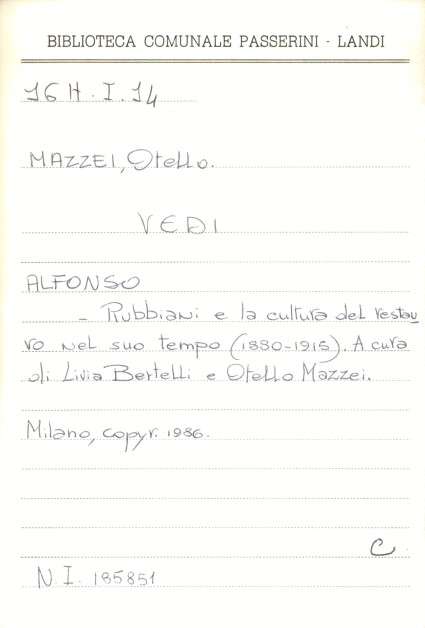 BIBLIOTECA COMUNALE PASSERINI - LANDI
16 H. I. 14
MAZZEI, Otello.
VEDI
ALFONSO
- Rubbiani e la cultura del restau
ro nel suo tempo (1880-1915). A cura
di Livia Bertelli e Otello Mazzei.
Milano, copyr. 1986.
C.
N. I. 185851